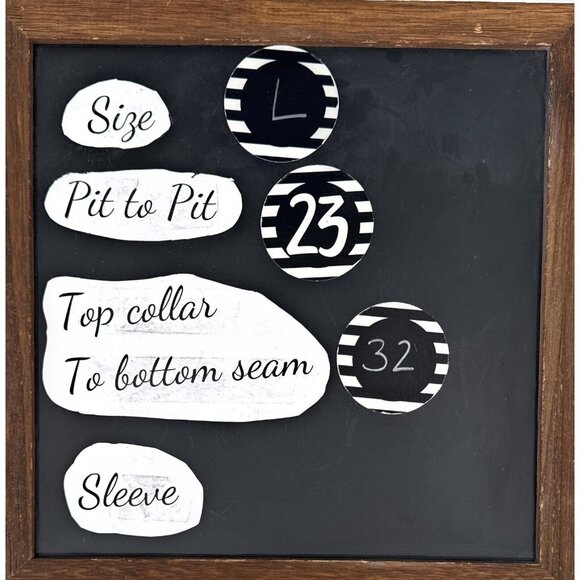 Size
L
Pit to Pit
23
Top collar
To bottom seam
32
Sleeve